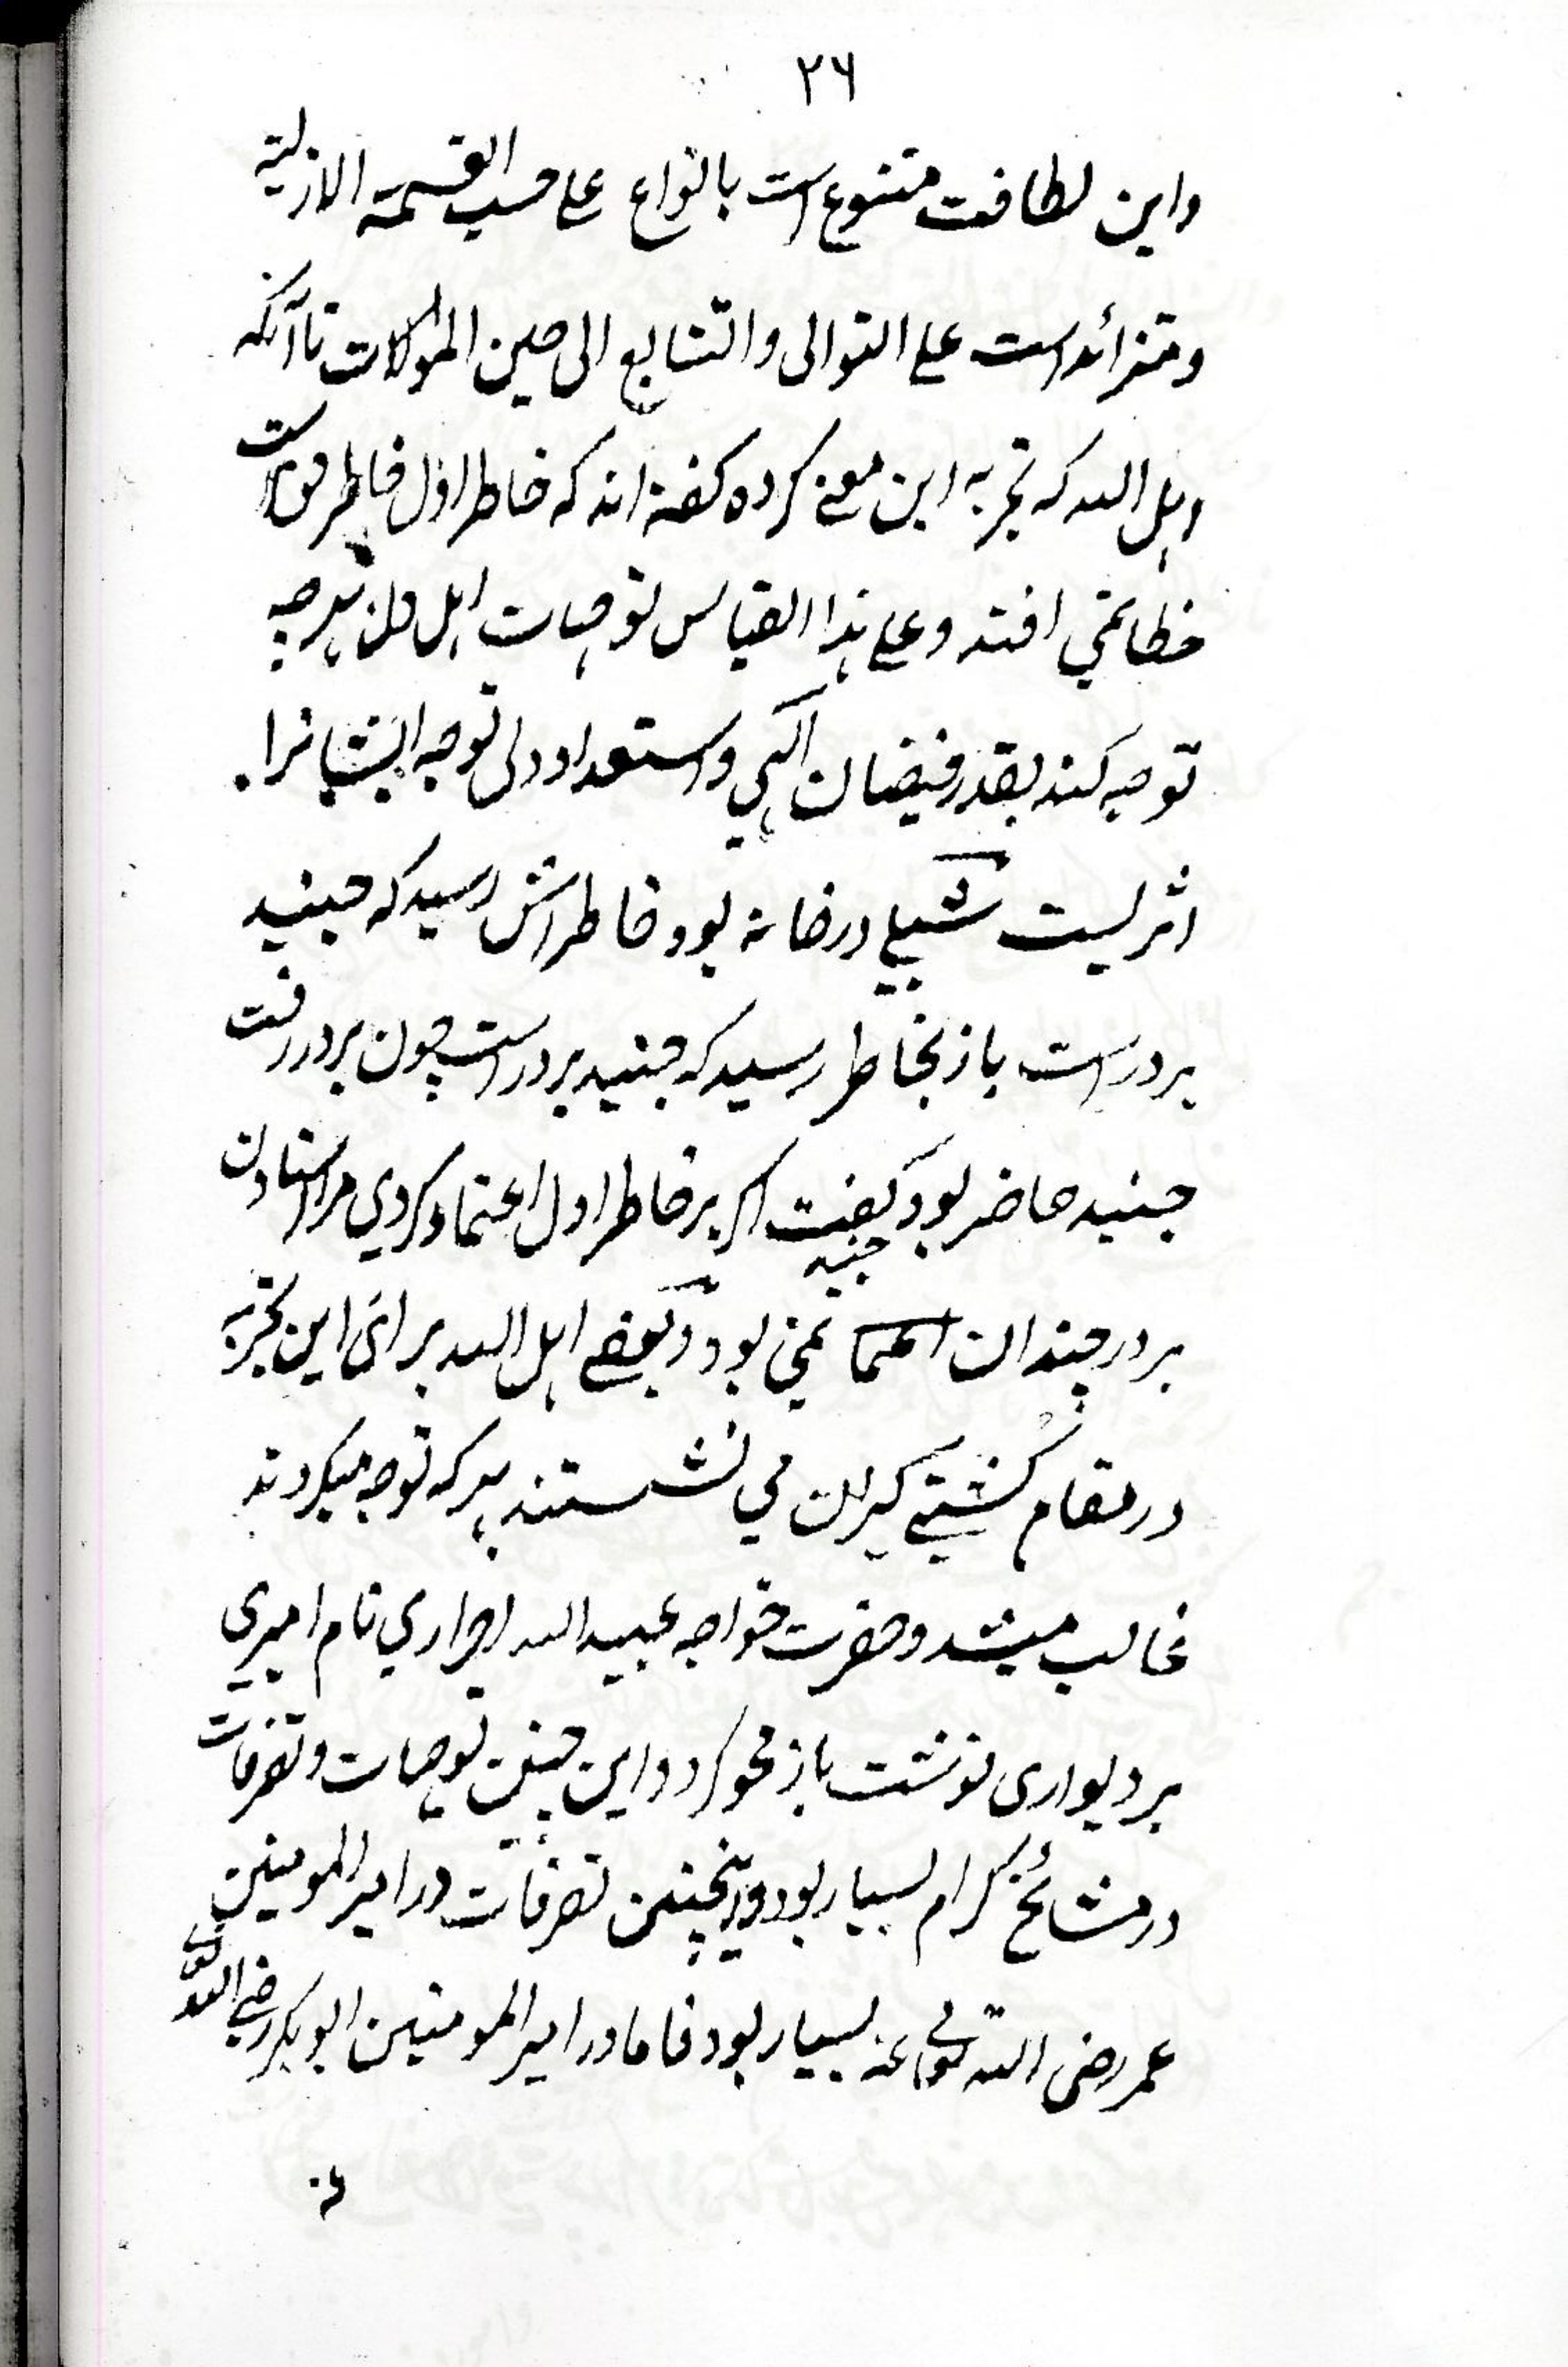 ۲۶
واین لطافت متنوع است بانواع علی حسب القسمة الازلیة
ومتزائد است علی التوالی والتتابع الی حین تاآنکه
اہل اللہ کہ تجربہ این معنے کردہ کفتہ اند کہ خاطر اول خاطر حق است
خطا نمی افتد و علی ہذا القیاس توجہات اہل دل بہر چہ
توجہ کنند بقدر فیضان الٰہی و استعداد دلی توجہ ایشانرا
اثریست شبلی در خانہ بود خاطراش رسید کہ جنید
بر در است باز بخاطر رسید کہ جنید بر در است چون بر در رفت
جنید حاضر بود کفت جنید اکر بر خاطر اول اعتماد کردی مرا استادن
بر در چندان نمی بود و بعضے اہل اللہ برای این تجربہ
در مقام کشتی کیران می نشستند بہر کہ توجہ میکردند
غالب میشد و حضرت خواجہ عبید اللہ احراری نام امیری
بر دیواری نوشت باز محو کرد و این چنین توجہات و تصرفات
در مشائخ کرام بسیار بود و اینچنین تصرفات در امیر المومنین
عمر رضی اللہ تعالی عنہ بسیار بود فاما در امیر المومنین ابوبکر رضی اللہ تعالی
عنہ